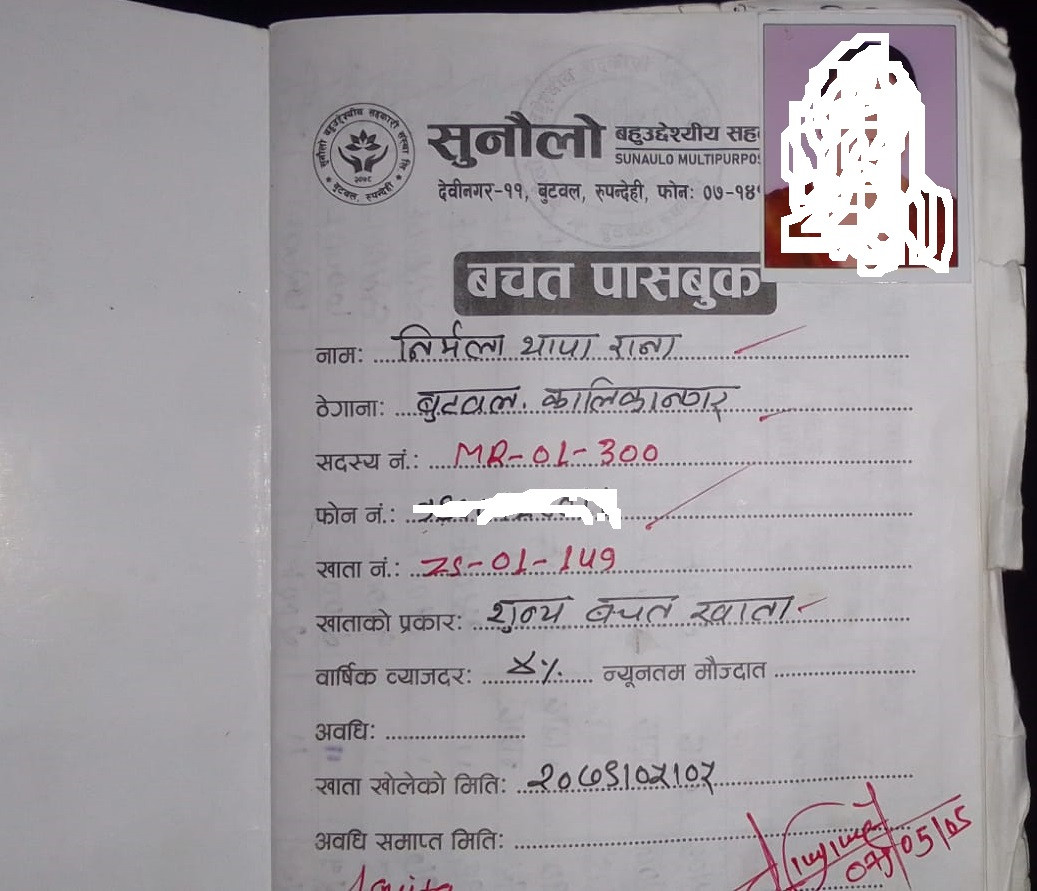 सुनौलो बहुउद्देश्यीय सह
SUNAULO MULTIPURPO
देवीनगर-११, बुटवल, रुपन्देही, फोन: ०७-१४
बचत पासबुक
नाम: निर्मला थापा राना
ठेगाना: बुटवल. कालिकानगर
सदस्य नं.: MR-01-300
फोन नं.:
खाता नं.: ZS-01-149
खाताको प्रकार: शुन्य बचत खाता
वार्षिक व्याजदर: ४% न्यूनतम मौज्दात
अवधि:
खाता खोलेको मिति:
अवधि समाप्त मिति: